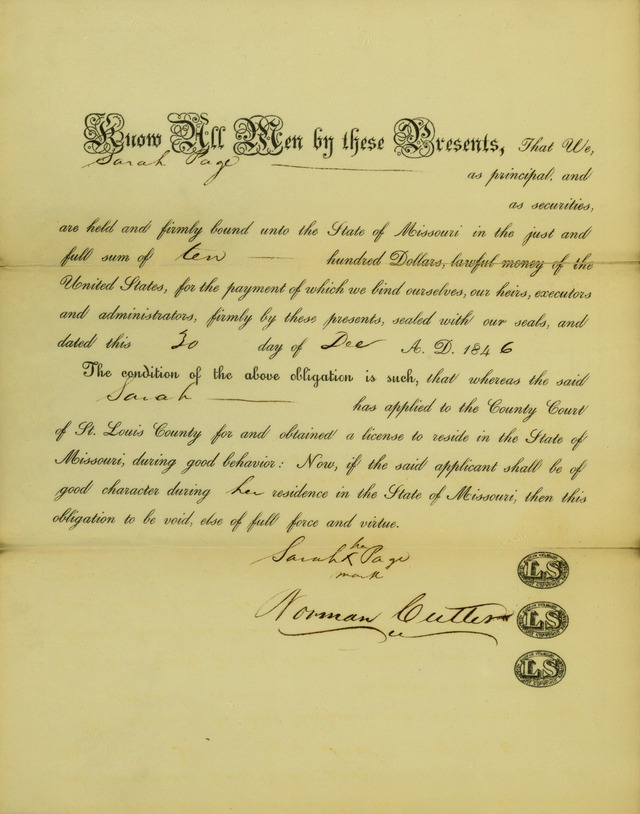 Know All Men by these Presents, That We,
Sarah Page
as principal, and
as securities,
are held and firmly bound unto the State of Missouri in the just and
full sum of ten hundred Dollars, lawful money of the
United States, for the payment of which we bind ourselves, our heirs, executors
and administrators, firmly by these presents, sealed with our seals, and
dated this 30 day of Dec A. D. 1846
The condition of the above obligation is such, that whereas the said
Sarah
has applied to the County Court
of St. Louis County for and obtained a license to reside in the State of
Missouri, during good behavior: Now, if the said applicant shall be of
good character during her residence in the State of Missouri, then this
obligation to be void, else of full force and virtue.
her
Sarah X Page
mark
LS
Norman Cutter
LS
LS